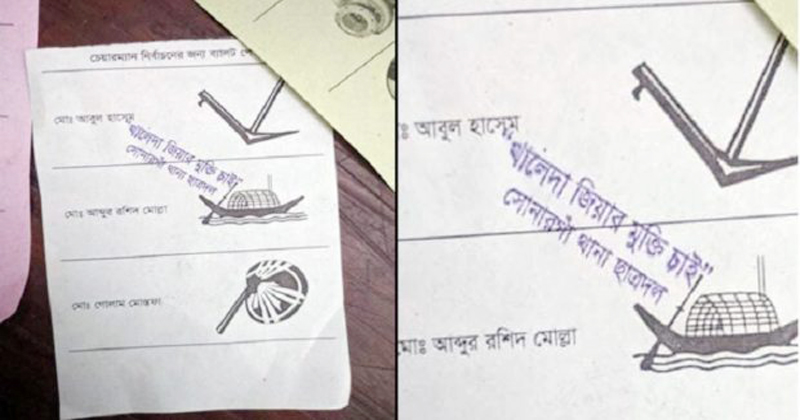 চেয়ারম্যান নির্বাচনের জন্য ব্যালট পে
মোঃ আবুল হাসেম
খালেদা জিয়ার মুক্তি চাই"
সোনারগাঁ থানা ছাত্রদল
মোঃ আব্দুর রশিদ মোল্লা
মোঃ গোলাম মোস্তফা
ঃ আবুল হাসেম
খালেদা জিয়ার মুক্তি চাই"
সোনারগাঁ থানা ছাত্রদল
মোঃ আব্দুর রশিদ মোল্লা